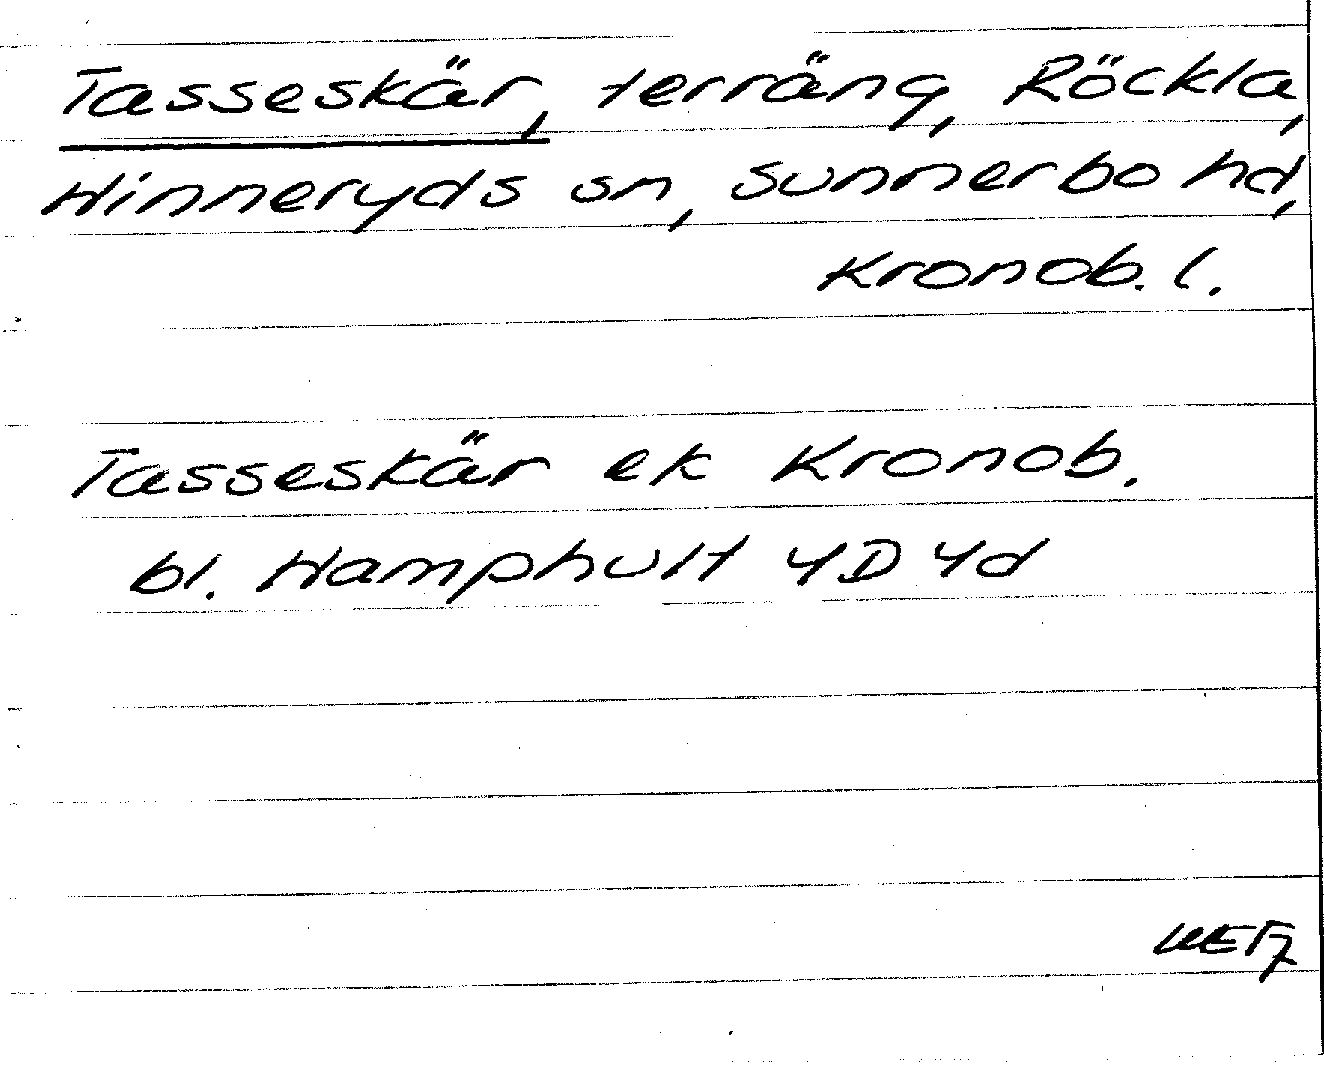 Tasseskär, terräng, Röckla,
Hinneryds sn, Sunnerbo hd,
Kronob. l.
Tasseskär ek Kronob.
bl. Hamphult 4D4d